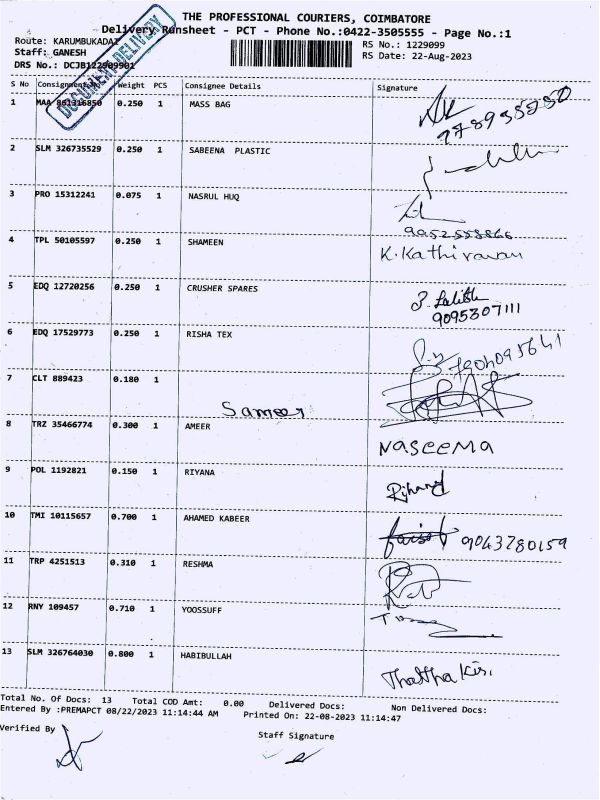 THE PROFESSIONAL COURIERS, COIMBATORE
Delivery Runsheet - PCT - Phone No.:0422-3505555 - Page No.:1
Route: KARUMBUKADAI
RS No.: 1229099
Staff: GANESH
RS Date: 22-Aug-2023
DRS No.: DCJB122909901
DOCUMENT DELIVERY
S No Consignment Weight PCS Consignee Details Signature
1 MAA 861316850 0.250 1 MASS BAG
2 SLM 326735529 0.250 1 SABEENA PLASTIC
3 PRO 15312241 0.075 1 NASRUL HUQ
9952558866
4 TPL 50105597 0.250 1 SHAMEEN K.Kathiravan
5 EDQ 12720256 0.250 1 CRUSHER SPARES
9095307111
6 EDQ 17529773 0.250 1 RISHA TEX
7 CLT 889423 0.180 1
Sameer
8 TRZ 35466774 0.300 1 AMEER NASEEMA
9 POL 1192821 0.150 1 RIYANA
10 TMI 10115657 0.700 1 AHAMED KABEER 9043780159
11 TRP 4251513 0.310 1 RESHMA
12 RNY 109457 0.710 1 YOOSSUFF
13 SLM 326764030 0.800 1 HABIBULLAH
Total No. Of Docs: 13 Total COD Amt: 0.00 Delivered Docs: Non Delivered Docs:
Entered By :PREMAPCT 08/22/2023 11:14:44 AM Printed On: 22-08-2023 11:14:47
Verified By Staff Signature